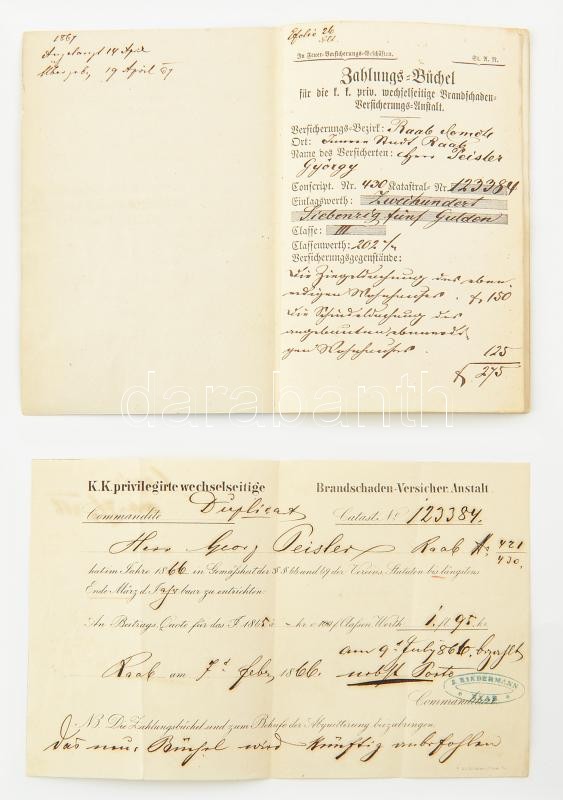 1867
Angelangt 14 April
Übergeb. 19 April 67
Efolio 26
In Feuer-Versicherungs-Geschäften.
St. A. N.
Zahlungs-Büchel
für die k. k. priv. wechselseitige Brandschaden-
Versicherungs-Anstalt.
Versicherungs-Bezirk: Raab
Ort: Innere Stadt Raab
Name des Versicherten: Herr Peisler
György
Conscript. Nr. 430 Katastral-Nr. 123384
Einlagswerth: Zweihundert
Siebenzig fünf Gulden
Classe: III
Classenwerth: 202
Versicherungsgegenstände:
die Ziegeldachung des eben-
erdigen Wohnhauses. f 150
die Schindeldachung des
angebauten ebenerdi-
gen Wohnhauses. 125
f 275
darabanth
K. K. privilegirte wechselseitige Brandschaden-Versicher. Anstalt
Commandite Duplicat Catast. No. 123384.
Herr Georg Peisler Raab No. 421
430.
hat im Jahre 1866 in Gemässheit der §§ 66 und 49 der Vereins Statuten bis längstens
Ende März d. Jahrs baar zu entrichten:
An Beitrags Quote für das J. 1865 à kr. c 100 f Classen Werth 1 fl 95 kr
am 9t July 866 bezahlt
Raab am 7t Feber 1866. nebst Porto
J. KINDERMANN
RAAB
Commandite
NB. Die Zahlungsbüchel sind zum Behufe der Abquittirung beizubringen.
Das neue Büchel wird künftig anbefohlen